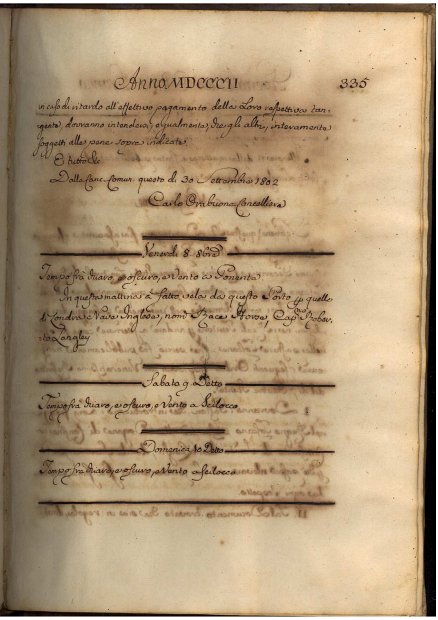 Anno MDCCCII 335
in caso di ritardo all'effettivo pagamento della Loro rispettiva tan-
gente, dovranno intendersi, egualmente, che gli altri, interamente
soggetti alle pene sopra indicate
E tutto &c.
Dalla Canc. Comun. questo dì 30 Settembre 1802
Carlo Cancelliere
Venerdì 8 8bre
Tempo fra chiaro, e oscuro, e Vento a Ponente
In questa mattina à fatto vela da questo Porto p quello
di Londra Nave Inglese, nom.
Langley
Sabato 9 Detto
Tempo fra chiaro, e oscuro, e Vento a Scilocco
Domenica 10 Detto
Tempo fra chiaro, e oscuro, e Vento a Scilocco